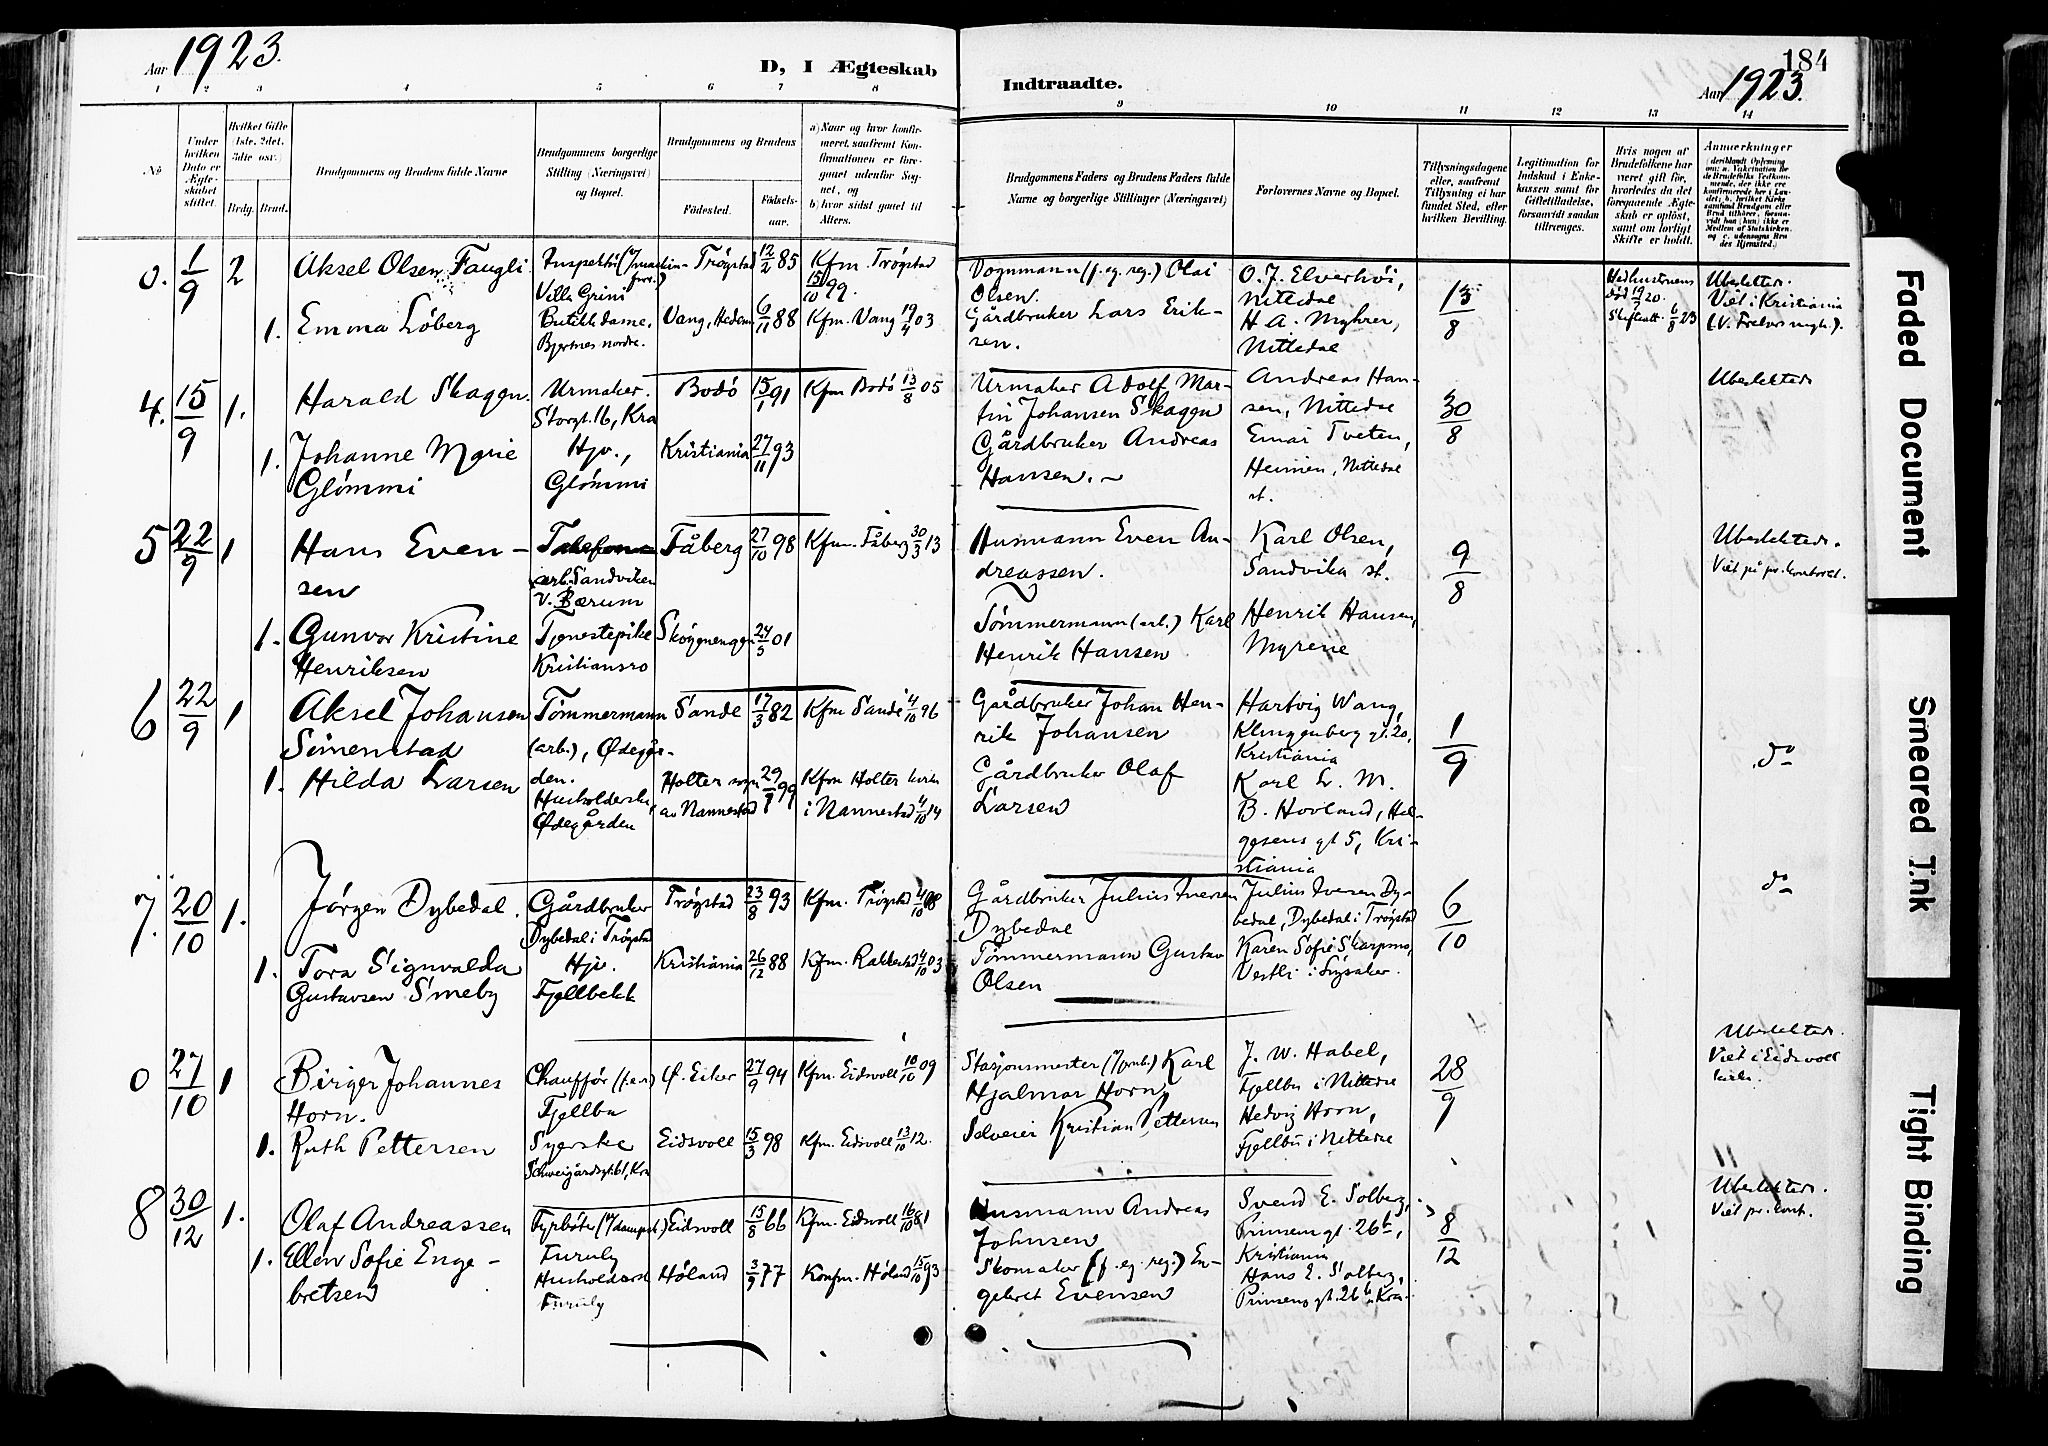 Aar 1923.
D, I Ægteskab
Indtraadte.
184
Aar 1923.
1 2 3 4 5 6 7 8 9 10 11 12 13 14
No
Under hvilken Dato er Ægteskabet stiftet.
Hvilket Gifte (1ste, 2det, 3dte osv.)
Brdg. Brud.
Brudgommens og Brudens fulde Navne
Brudgommens borgerlige Stilling (Næringsvei) og Bopæl.
Brudgommens og Brudens
Fødested.
Fødselsaar.
a) Naar og hvor konfirmeret, saafremt Konfirmationen er foregaaet udenfor Sognet, og
b) hvor sidst gaaet til Alters.
Brudgommens Faders og Brudens Faders fulde Navne og borgerlige Stillinger (Næringsvei)
Forlovernes Navne og Bopæl.
Tillysningsdagene eller, saafremt Tillysning ei har fundet Sted, efter hvilken Bevilling.
Legitimation for Indskud i Enkekassen samt for Giftetilladelse, forsaavidt saadan tiltrænges.
Hvis nogen af Brudefolkene har været gift før, hvorledes da det foregaaende Ægteskab er opløst, samt om lovligt Skifte er holdt.
Anmærkninger
0. 1/9 2 Aksel Olsen Faugli
Villa Grini
Trøgstad 12/2 85 Kfm. Trøgstad 15/10 99.
Vognmann (f. eg. reg.) Olai Olsen.
O. J. Elverhöi, Nittedal
13/8
død 19/2 20.
Skifteatt. 6/8 23
Ubeslektede.
Viet i Kristiania
1. Emma Löberg
Butikkdame, Bjertnes nordre.
Vang, Hedem 6/11 88 Kfm. Vang 19/4 03
Gårdbruker Lars Eriksen.
H. A. Myhrer, Nittedal
4. 15/9 1. Harald Skaggen.
Urmaker. Storgt. 16, Kra
Bodö 15/1 91 Kfm Bodö 13/8 05
Urmaker Adolf Martin Johansen Skaggen
Andreas Hansen, Nittedal
30/8
Ubeslektede
1. Johanne Marie Glömmi
Hjv., Glömmi
Kristiania 27/11 93
Gårdbruker Andreas Hansen.
Einar Tveten, Heimen, Nittedal st.
5 22/9 1 Hans Evensen
arb. Sandviken v. Bærum
Fåberg 27/10 98 Kfm. Fåberg 30/3 13
Husmann Even Andreassen.
Karl Olsen, Sandvika st.
9/8
Ubeslektede.
Viet på pr. kontoret.
1. Gunvor Kristine Henriksen
Tjenestepike Kristiansro
24/5 01
Tömmermann (arb.) Karl Henrik Hansen
Henrik Hansen, Myrene
6 22/9 1 Aksel Johansen Simenstad
Tömmermann (arb.), Ødegården.
Sande 17/3 82 Kfm Sande 4/10 96
Gårdbruker Johan Henrik Johansen
Hartvig Wang, Klingenberg gt. 20, Kristiania
1/9
do
1. Hilda Larsen
Husholderske, Ødegården
Holter sogn av Nannestad 29/9 99 Kfm Holter kirke i Nannestad 4/10 14
Gårdbruker Olaf Larsen
Karl L. M. B. Hovland, Helgesens gt 5, Kristiania
7. 20/10 1. Jørgen Dybedal.
Gårdbruker Dybedal i Trøgstad
Trøgstad 23/8 93 Kfm. Trøgstad 4/10 08
Gårdbruker Julius Iversen Dybedal
Julius Iversen Dybedal, Dybedal i Trøgstad
6/10
do
1. Tora Signvalda Gustavsen Smeby
Hjv. Fjellbekk
Kristiania 26/12 88 Kfm. Rakkestad 4/10 03
Tømmermann Gustav Olsen
Karen Sofie Skarpmo, Vestli i Lysaker.
0 27/10 1 Birger Johannes Horn.
Chauffør (f.e.r) Fjellbu
Ø. Eiker 27/9 94 Kfm. Eidsvoll 10/10 09
Stasjonsmester Karl Hjalmar Horn
J. W. Habel, Fjellbu i Nittedal
28/9
Ubeslektede.
Viet i Eidsvoll kirke.
1. Ruth Pettersen
Syerske Schweigårdsgt. 61, Kra
Eidsvoll 15/3 98 Kfm. Eidsvoll 13/10 12.
Selveier Kristian Pettersen
Hedvig Horn, Fjellbu i Nittedal
8 30/12 1. Olaf Andreassen
Fyrbøter Furuly
Eidsvoll 15/8 66 Kfm. Eidsvoll 16/10 81
Husmann Andreas Johnsen
Svend E. Solberg, Prinsens gt. 26b, Kristiania
8/12
Ubeslektede.
Viet pr. kont.
1. Ellen Sofie Engebretsen
Husholderske Furuly
Høland 3/9 77 Konfm. Høland 15/10 93
Skomaker (f. eg. reg.) Engebret Evensen
Hans E. Solberg, Prinsens gt. 26b, Kra.
Faded Document
Smeared Ink
Tight Binding